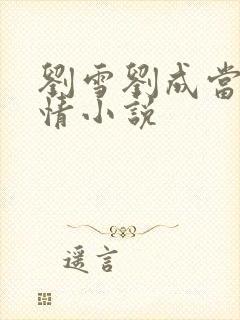 劉雪劉成當
情小説
遥言